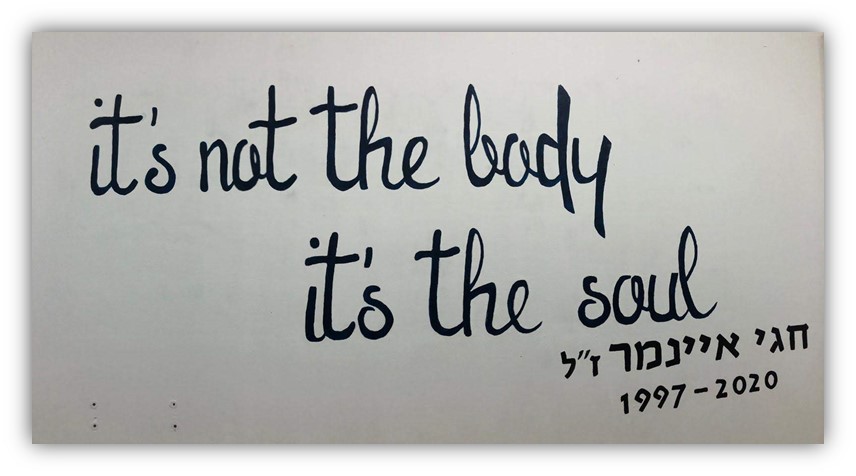 it's not the body
it's the soul
חגי איינמר ז"ל
1997-2020